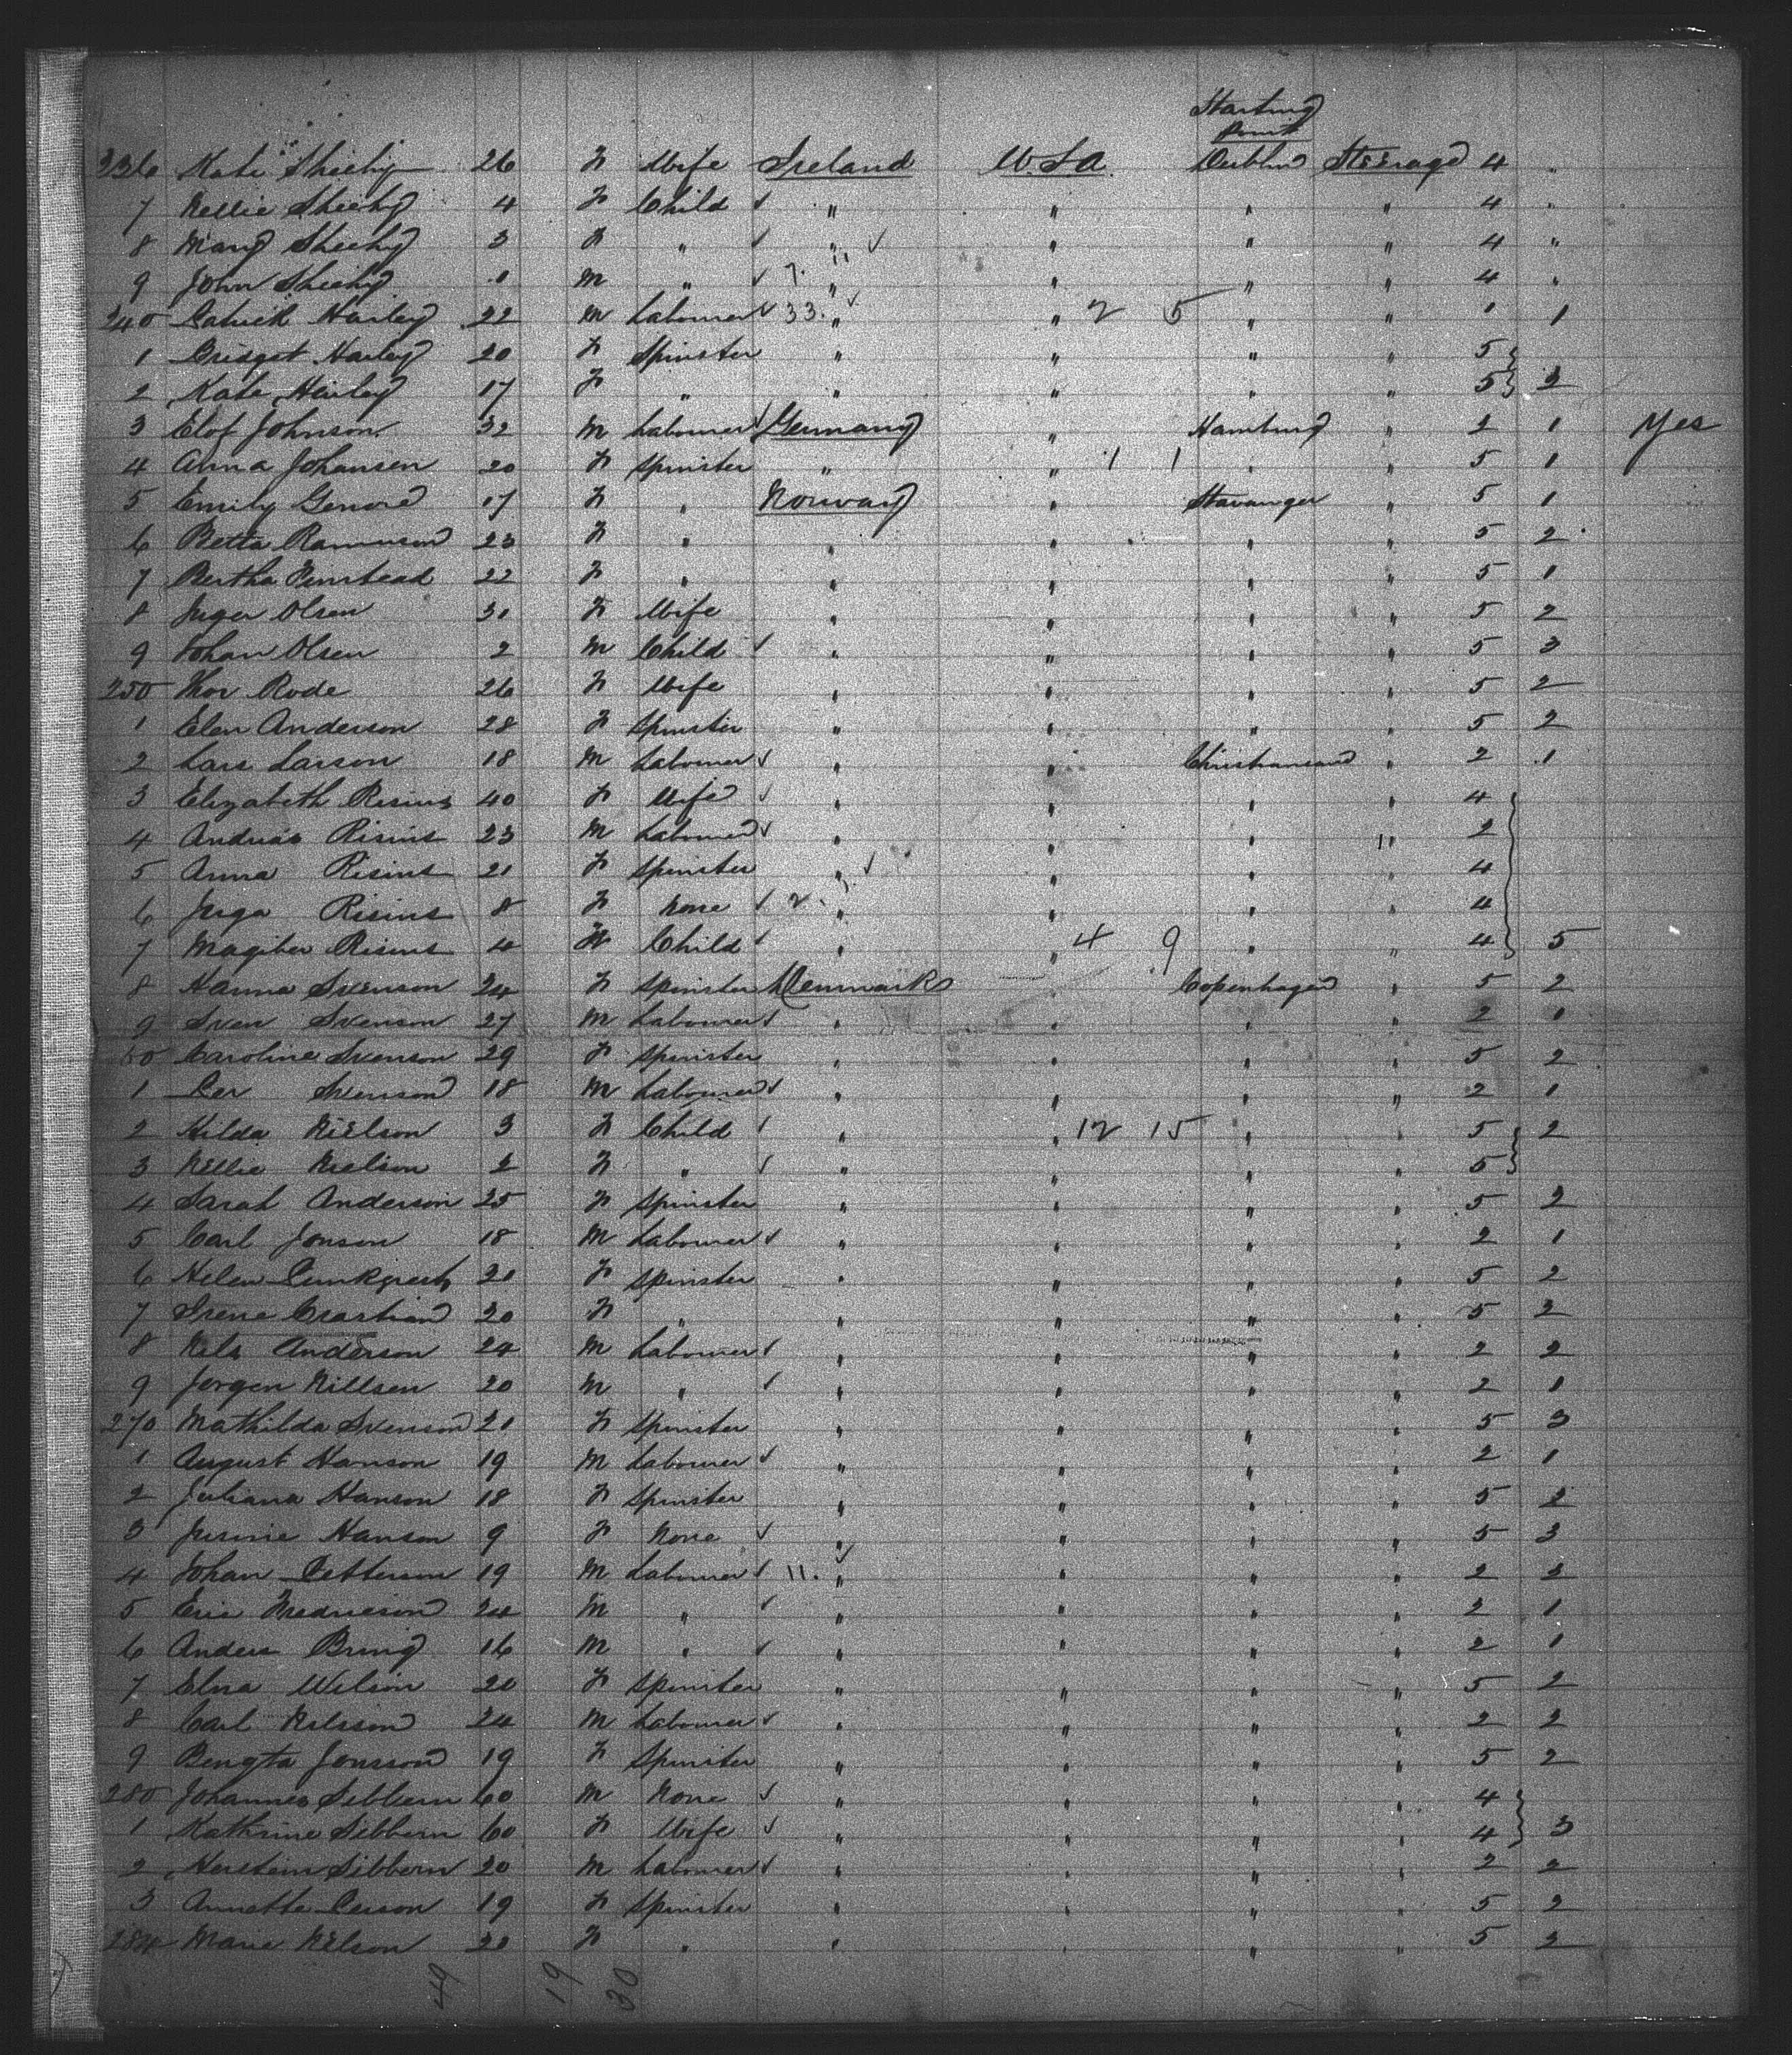 Starting
Point
236 Kate Sheehy 26 F Wife Ireland U.S.A. Dublin Steerage 4 "
7 Nellie Sheehy 4 F Child ✓ " " " " 4 "
8 Mary Sheehy 3 F " ✓ " ✓ " " " 4 "
9 John Sheehy 1 M " ✓ 7. 11 " " " " 4 "
240 Patrick Hurley 22 M Labourer ✓ 33. " ✓ " 2 5 " " 1 1
1 Bridget Hurley 20 F Spinster " " " " 5
2 Kate Hurley 17 F " " " " " 5 2
3 Elof Johnson 32 M Labourer ✓ Germany " Hamburg " 2 1 Yes
4 Anna Johansen 20 F Spinster " " 1 1 " " 5 1
5 Emily 17 F " Norway " Stavanger " 5 1
6 Betta 23 F " " " " " 5 2
7 Bertha 22 F " " " " " 5 1
8 Inger Olsen 31 F Wife " " " " 5 2
9 Johan Olsen 2 M Child ✓ " " " " 5 3
250 Thor Rode 26 F Wife " " " " 5 2
1 Elen Anderson 28 F Spinster " " " " 5 2
2 Lars Larson 18 M Labourer ✓ " " Christiansand " 2 1
3 Elizabeth Risius 40 F Wife ✓ " " " " 4
4 Andreas Risius 23 M Labourer ✓ " " " " 2
5 Anna Risius 21 F Spinster " ✓ " " " 4
6 Inga Risius 8 F None ✓ 2. " " " " 4
7 Risius 4 F Child ✓ " " 4 9 " " 4 5
8 Hanna Svenson 24 F Spinster Denmark Copenhagen " 5 2
9 Sven Svenson 27 M Labourer ✓ " " " " 2 1
60 Caroline Svenson 29 F Spinster " " " " 5 2
1 Per Svenson 18 M Labourer ✓ " " " " 2 1
2 Hilda Nielson 3 F Child ✓ " " 12 15 " " 5 2
3 Nellie Nielson 2 F " ✓ " " " " 5
4 Sarah Anderson 25 F Spinster " " " " 5 2
5 Carl Jonson 18 M Labourer ✓ " " " " 2 1
6 Helen 21 F Spinster " " " " 5 2
7 Irene 20 F " " " " " 5 2
8 Nels Anderson 24 M Labourer ✓ " " " " 2 2
9 Jorgen Nillsen 20 M " ✓ " " " " 2 1
270 Mathilda Svenson 21 F Spinster " " " " 5 3
1 August Hanson 19 M Labourer ✓ " " " " 2 1
2 Juliana Hanson 18 F Spinster " " " " 5 2
3 Hanson 9 F None ✓ " " " " 5 3
4 Johan Petterson 19 M Labourer ✓ 11. " ✓ " " " 2 2
5 Eric Fredricson 24 M " ✓ " " " " 2 1
6 Anders Bring 16 M " ✓ " " " " 2 1
7 Elna Wilson 20 F Spinster " " " " 5 2
8 Carl Nilsson 24 M Labourer ✓ " " " " 2 2
9 Bengta Jonsson 19 F Spinster " " " " 5 2
280 Johannes Sibbern 60 M None ✓ " " " " 4
1 Kathrine Sibbern 60 F Wife ✓ " " " " 4 3
2 Sibbern 20 M Labourer ✓ " " " " 2 2
3 Annette Person 19 F Spinster " " " " 5 2
284 Marie Nelson 20 F " " " " " 5 2
49 19 30